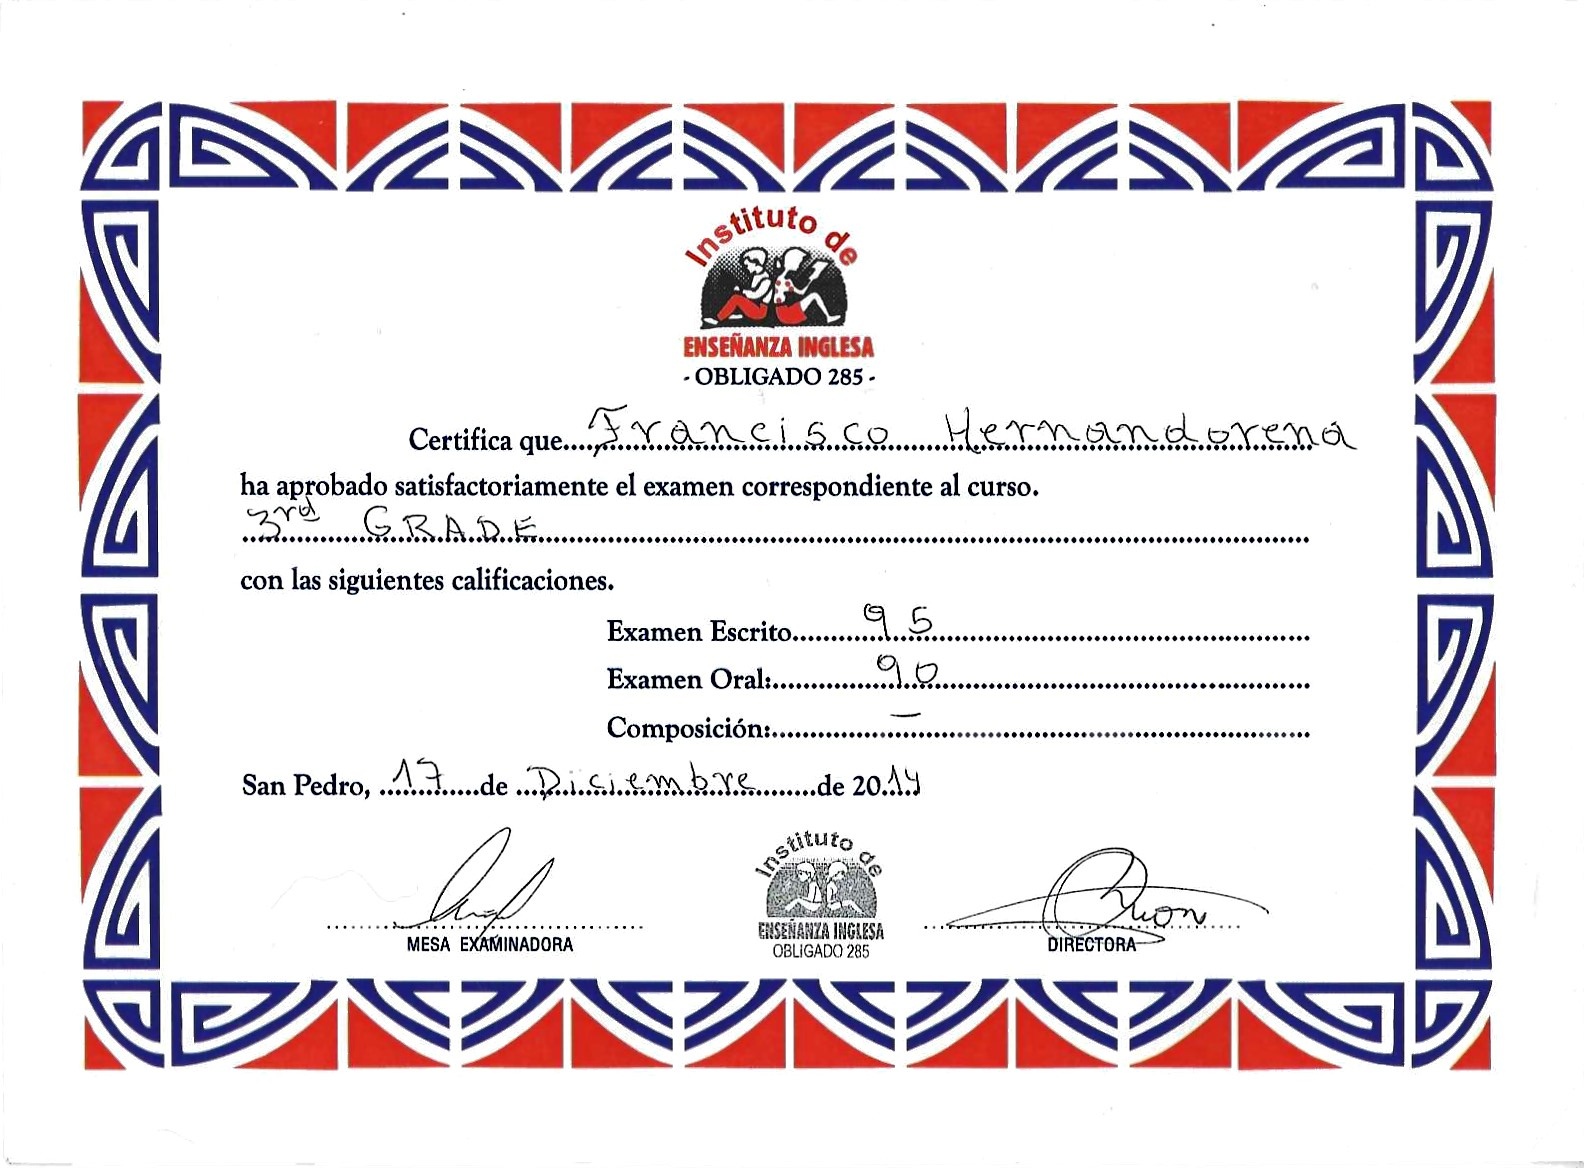 Instituto de
ENSEÑANZA INGLESA
- OBLIGADO 285 -
Certifica que.....Francisco Hernandorena
ha aprobado satisfactoriamente el examen correspondiente al curso.
3rd GRADE
con las siguientes calificaciones.
Examen Escrito.....95
Examen Oral:.....90
Composición:.....—
San Pedro, ...17...de ...Diciembre...de 2014
Instituto de
ENSEÑANZA INGLESA
OBLIGADO 285
MESA EXAMINADORA
DIRECTORA